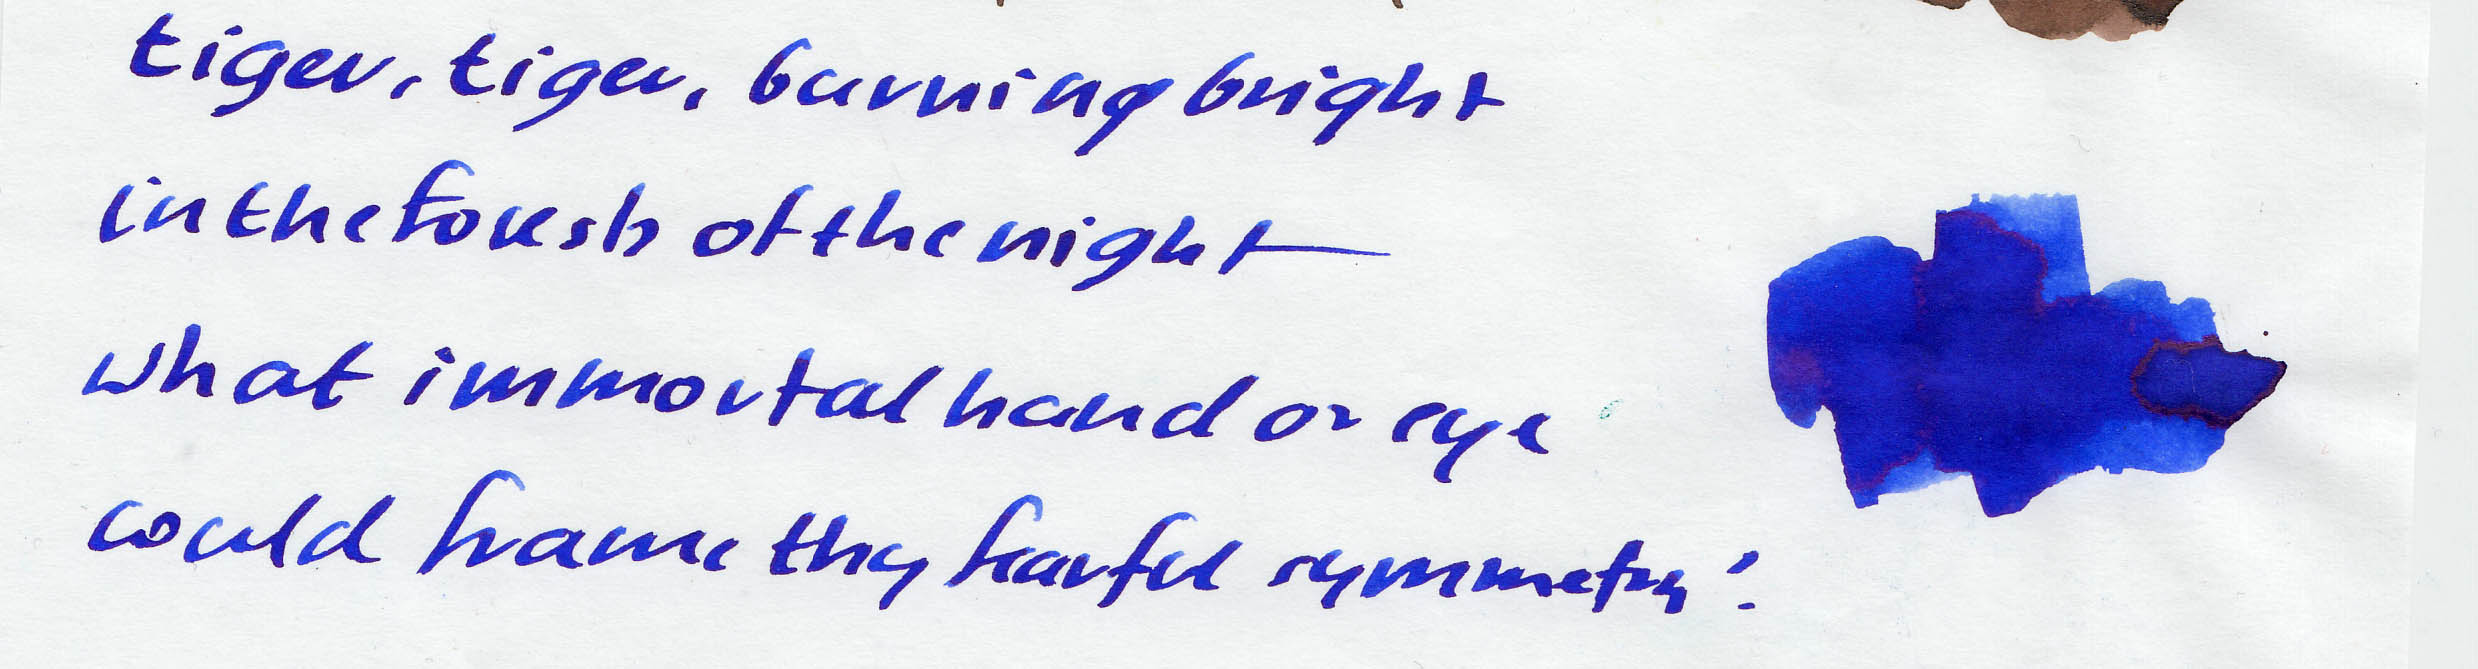 tiger, tiger, burning bright
in the forests of the night
what immortal hand or eye
could frame thy fearful symmetry!